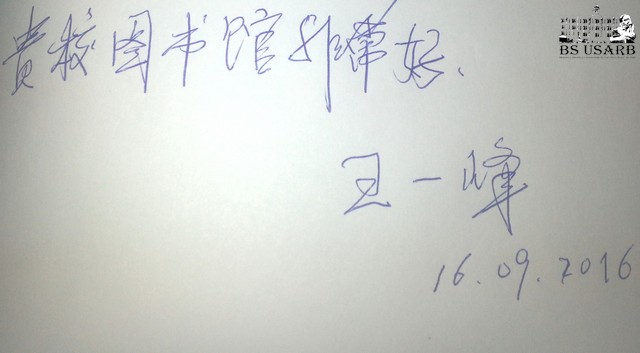 贵校图书馆非常好.
王一峰
16.09.2016
BS USARB